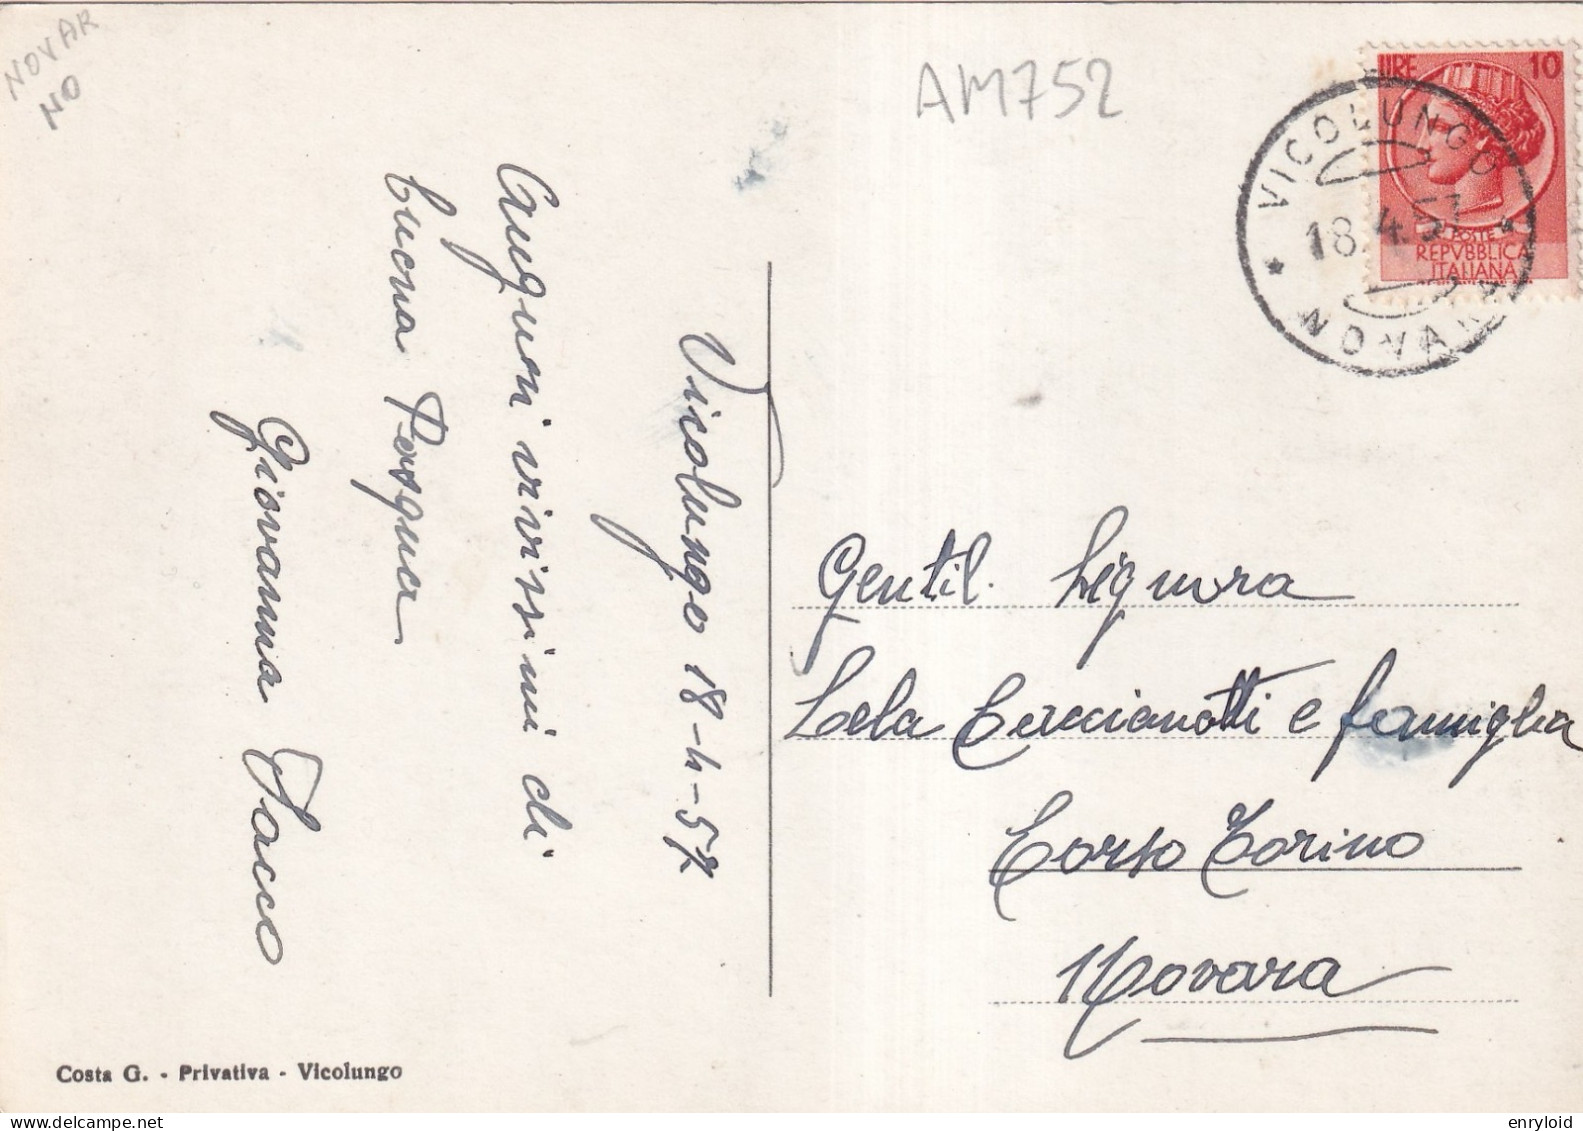 NOVAR
NO
AM752
LIRE 10
POSTE
REPVBBLICA
ITALIANA
VICOLUNGO
18.4.57
NOVARA
Vicolungo 18-4-57
Auguri vivissimi di
buona Pasqua
Giovanna Sacco
Gentil. Signora
Lela e famiglia
Corso Torino
Novara
Costa G. - Privativa - Vicolungo
enryloid